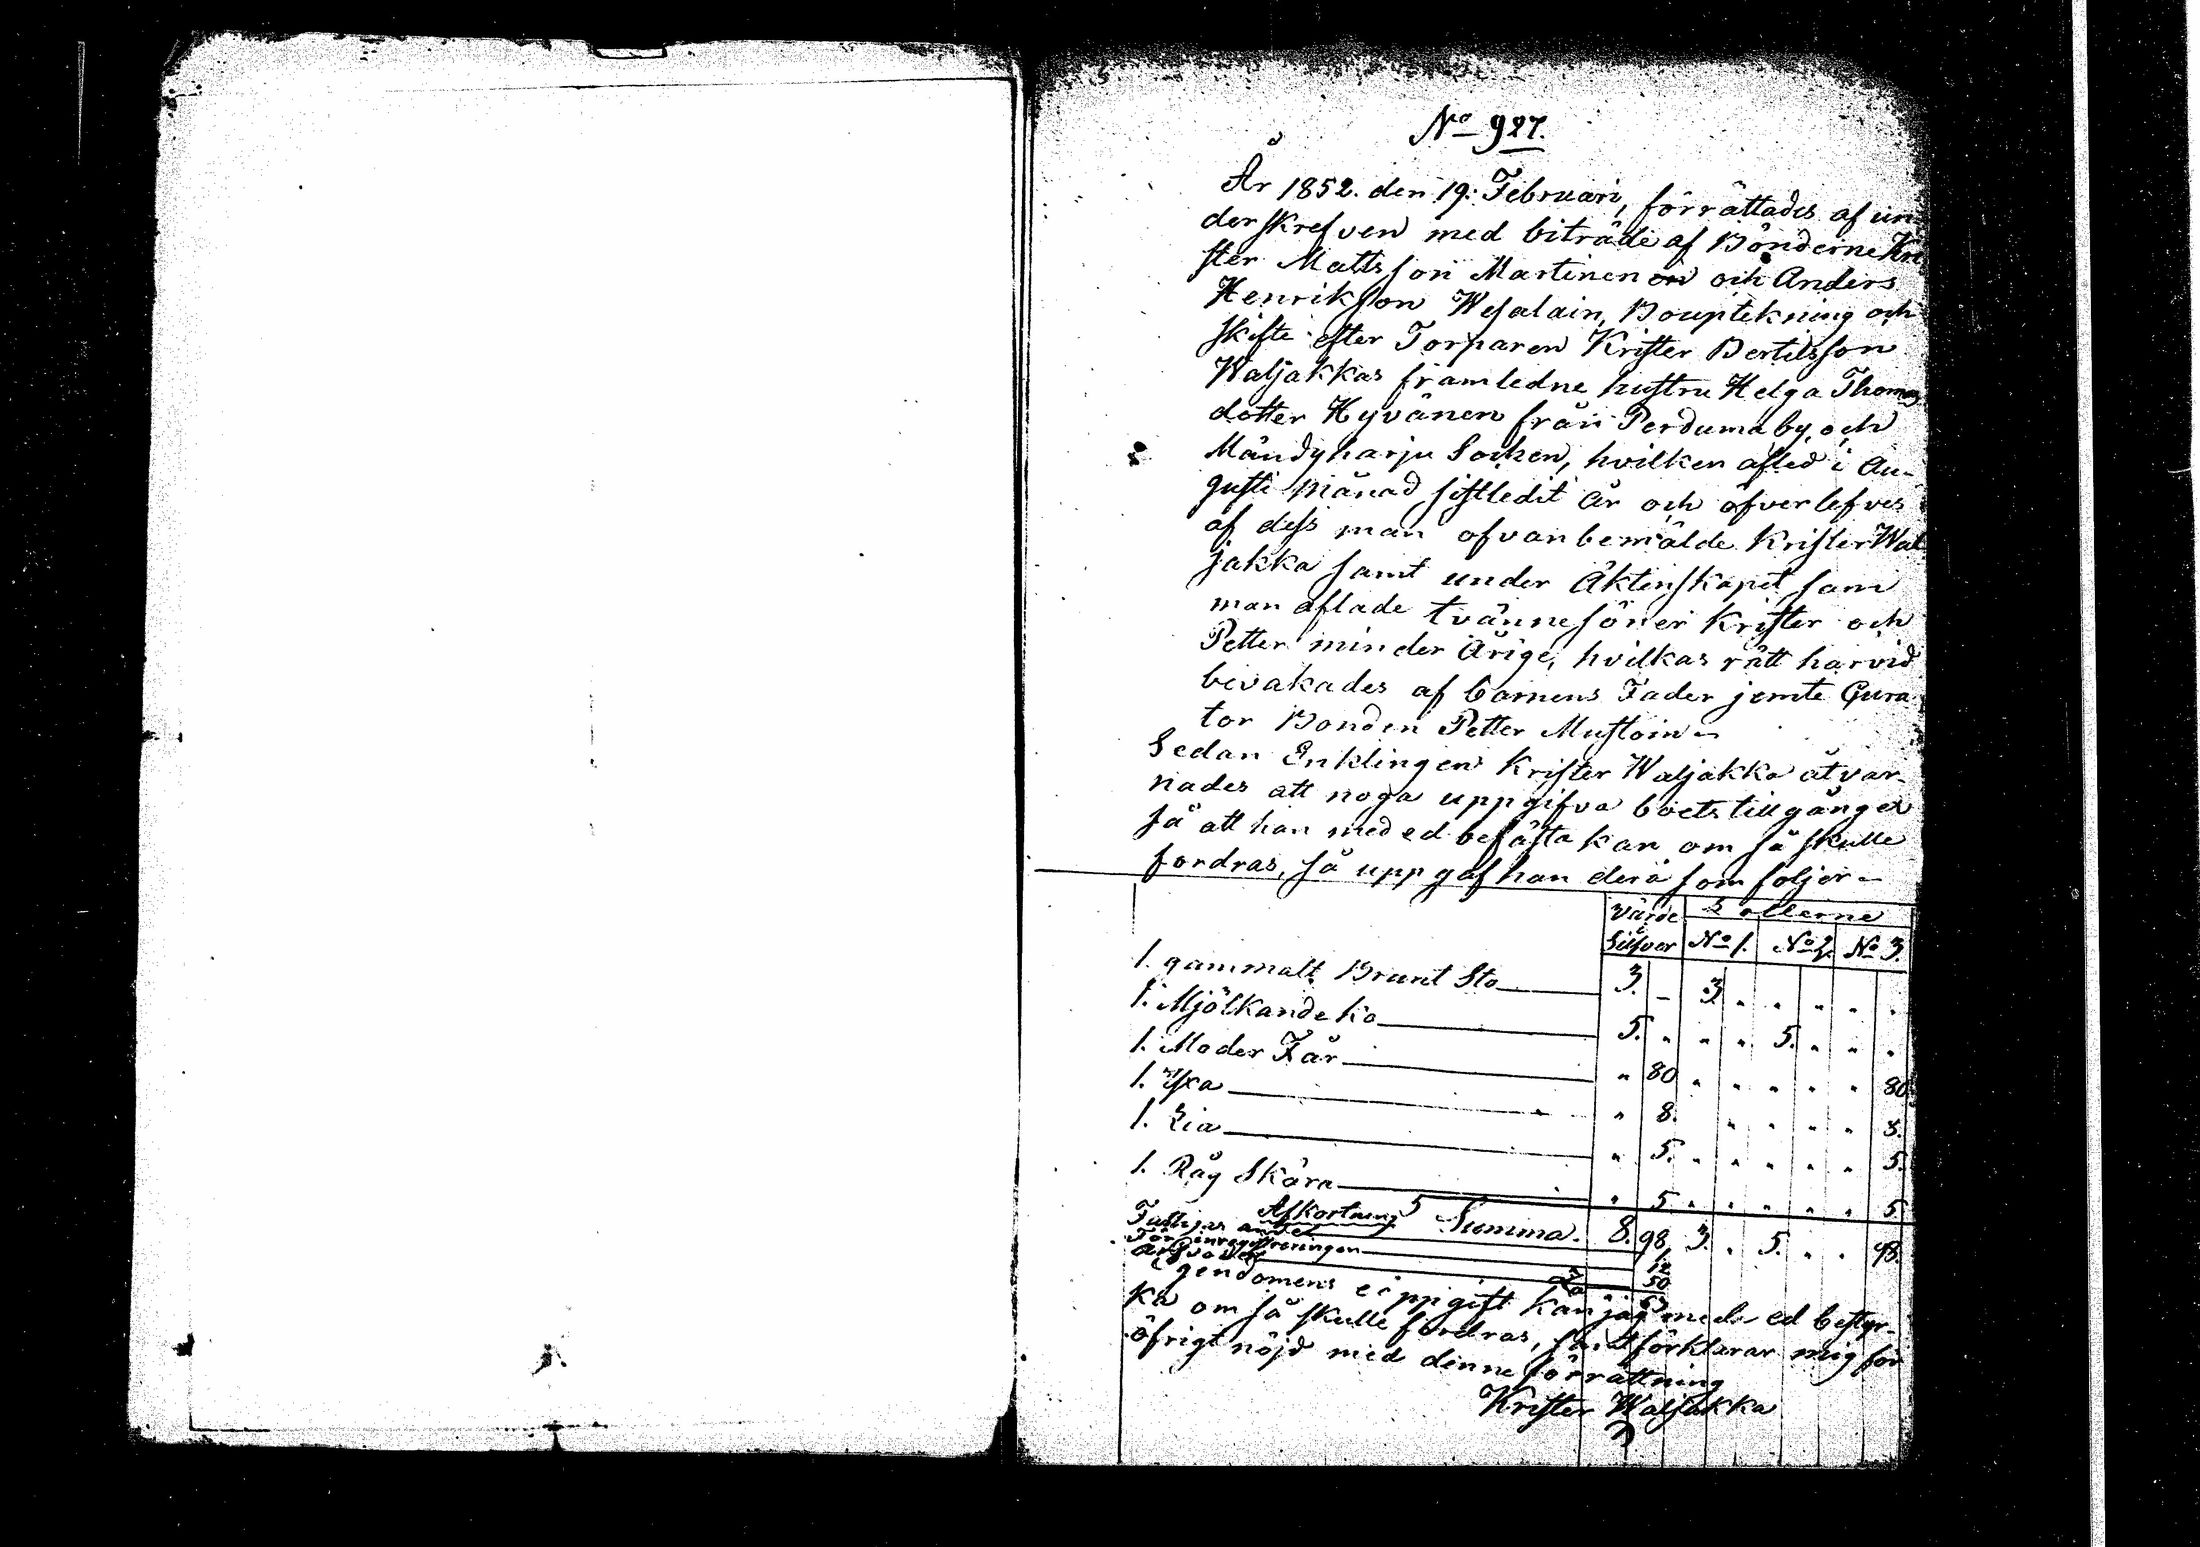 No 927.
År 1852. den 19. Februari, förrättades af un-
derskrefven med biträde af Bönderne Kri-
ster Mattsson Martinen och Anders
Henriksson Wesalain, Bouptekning och
skifte efter Torparen Krister Bertilsson
Waljakkas framledne hustru Helga Thomas
dotter Hyvänen från Perduma by och
Mändyharju Socken, hvilken afled i Au-
gusti månad sistledit år och öfverlefves
af dess man ofvanbemälde Krister Wal-
jakka samt under Äktenskapet sam
man aflade tvänne söner Krister och
Petter minder Årige, hvilkas rätt harvid
bevakades af barnens Fader jemte Cura-
tor Bonden Petter Mustoin
Sedan Enklingen Krister Waljakka åtvar-
nades att noga uppgifva boets tillgångar
så att han med ed befästa kan om så skulle
fordras, så uppgaf han derå som följer
värde Lotterne
Silfver No 1. No 2. No 3.
1. gammalt Brunt Sto 3. - 3. " " " " "
1. Mjölkande Ko 5. " " " 5. " " "
1. Moder Får " 80 " " " " " 80.
1. Yxa " 8. " " " " 8.
1. Lia " 5. " " " " " 5.
1. Råg Skära " 5 " " " " " 5.
Afkortning Summa. 8. 98 3. " 5. " " 98.
Fattigas andel 12
För inregistreringen 50
Arfvode
gendomens uppgift kan jag med ed bestyr-
ka om så skulle fordras, samt förklarar mig för
öfrigt nöjd med denne förrättning
Krister Waljakka